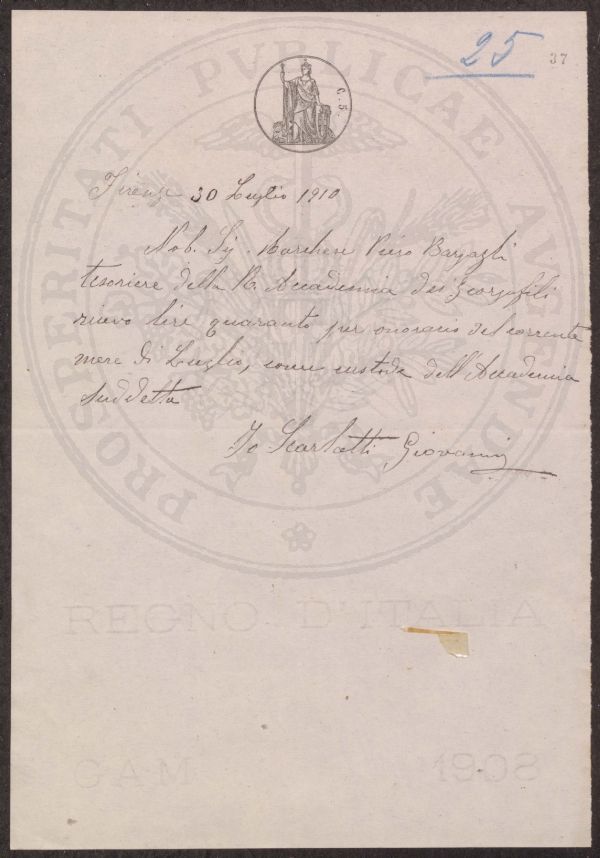 25
37
PROSPERITATI PVBLICAE AVGENDAE
C. 5.
Firenze 30 Luglio 1910
Nob. Sig. Marchese Piero Bargagli
tesoriere della R. Accademia dei Georgofili
ricevo lire quaranta per onorario del corrente
mese di Luglio, come custode dell'Accademia
suddetta
Io Scarlatti Giovanni
REGNO D'ITALIA
GAM 1908